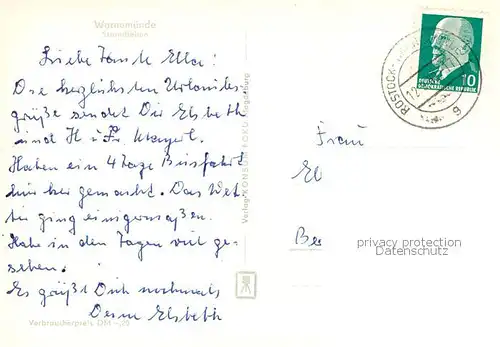 Warnemünde
Strandleben
Liebe Tante Ella!
Die herzlichsten Urlaubs-
grüße sendet Dir Elsbeth
und H u. Fr.
Haben ein 4 Tage Busfahrt
hier her gemacht. Das Wet-
ter ging einigermaßen.
Habe in den Tagen viel ge-
sehen.
Es grüßt Dich nochmals
Deine Elsbeth
Verbraucherpreis DM -,20
Verlag KONSUM-FOKO Magdeburg
ROSTOCK-
12
9
DEUTSCHE
DEMOKRATISCHE REPUBLIK
10
Frau
El
Be
privacy protection
Datenschutz